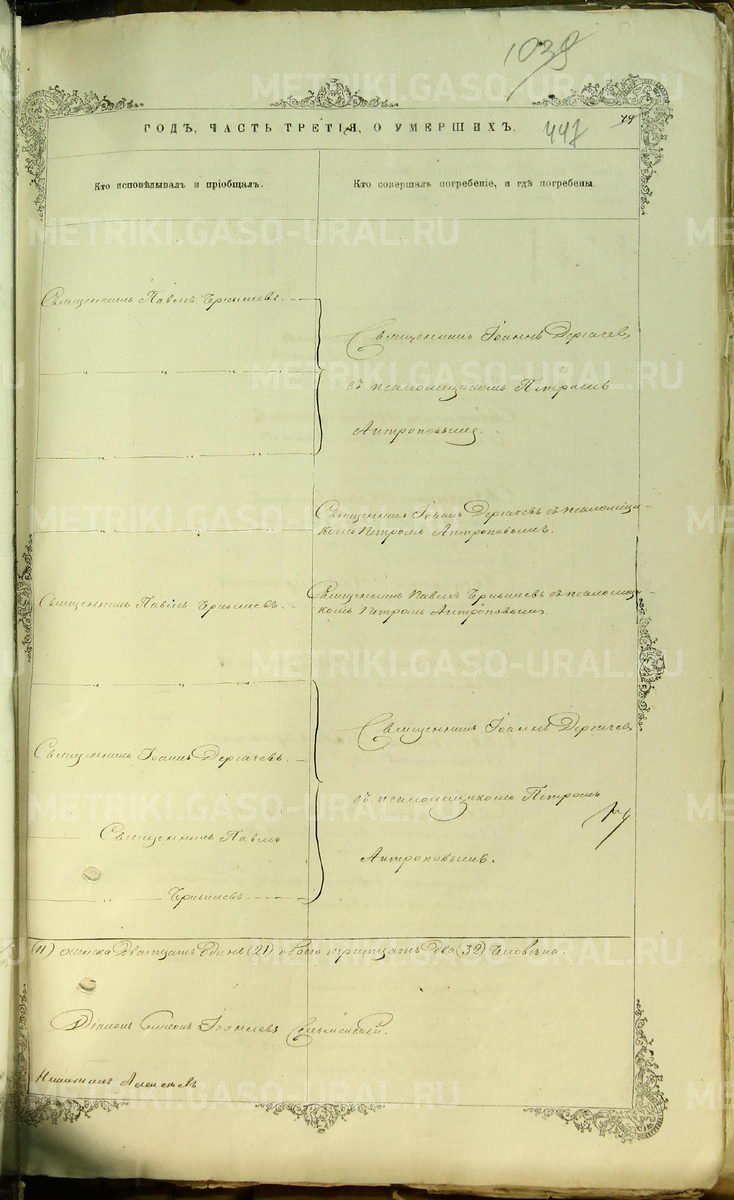 1039
447
74
ГОДЪ, ЧАСТЬ ТРЕТІЯ, О УМЕРШИХЪ.
Кто исповѣдывалъ и пріобщалъ.
Кто совершалъ погребеніе, и гдѣ погребены.
Священникъ Павелъ Чернышевъ.
Священникъ Іоаннъ Дергачевъ
съ псаломщикомъ Петромъ
Антроповымъ.
Священникъ Іоаннъ Дергачевъ съ псаломщи-
комъ Петромъ Антроповымъ.
Священникъ Павелъ Чернышевъ
Священникъ Павелъ Чернышевъ съ псаломщи-
комъ Петромъ Антроповымъ
Священникъ Іоаннъ Дергачевъ
Священникъ Іоаннъ Дергачевъ.
съ псаломщикомъ Петромъ
Священникъ Павелъ
Антроповымъ.
Чернышевъ
(11) женска двадцать одна (21) обоего тридцать два (32) человѣка.
Діаконъ Симеонъ
METRIKI.GASO-URAL.RU